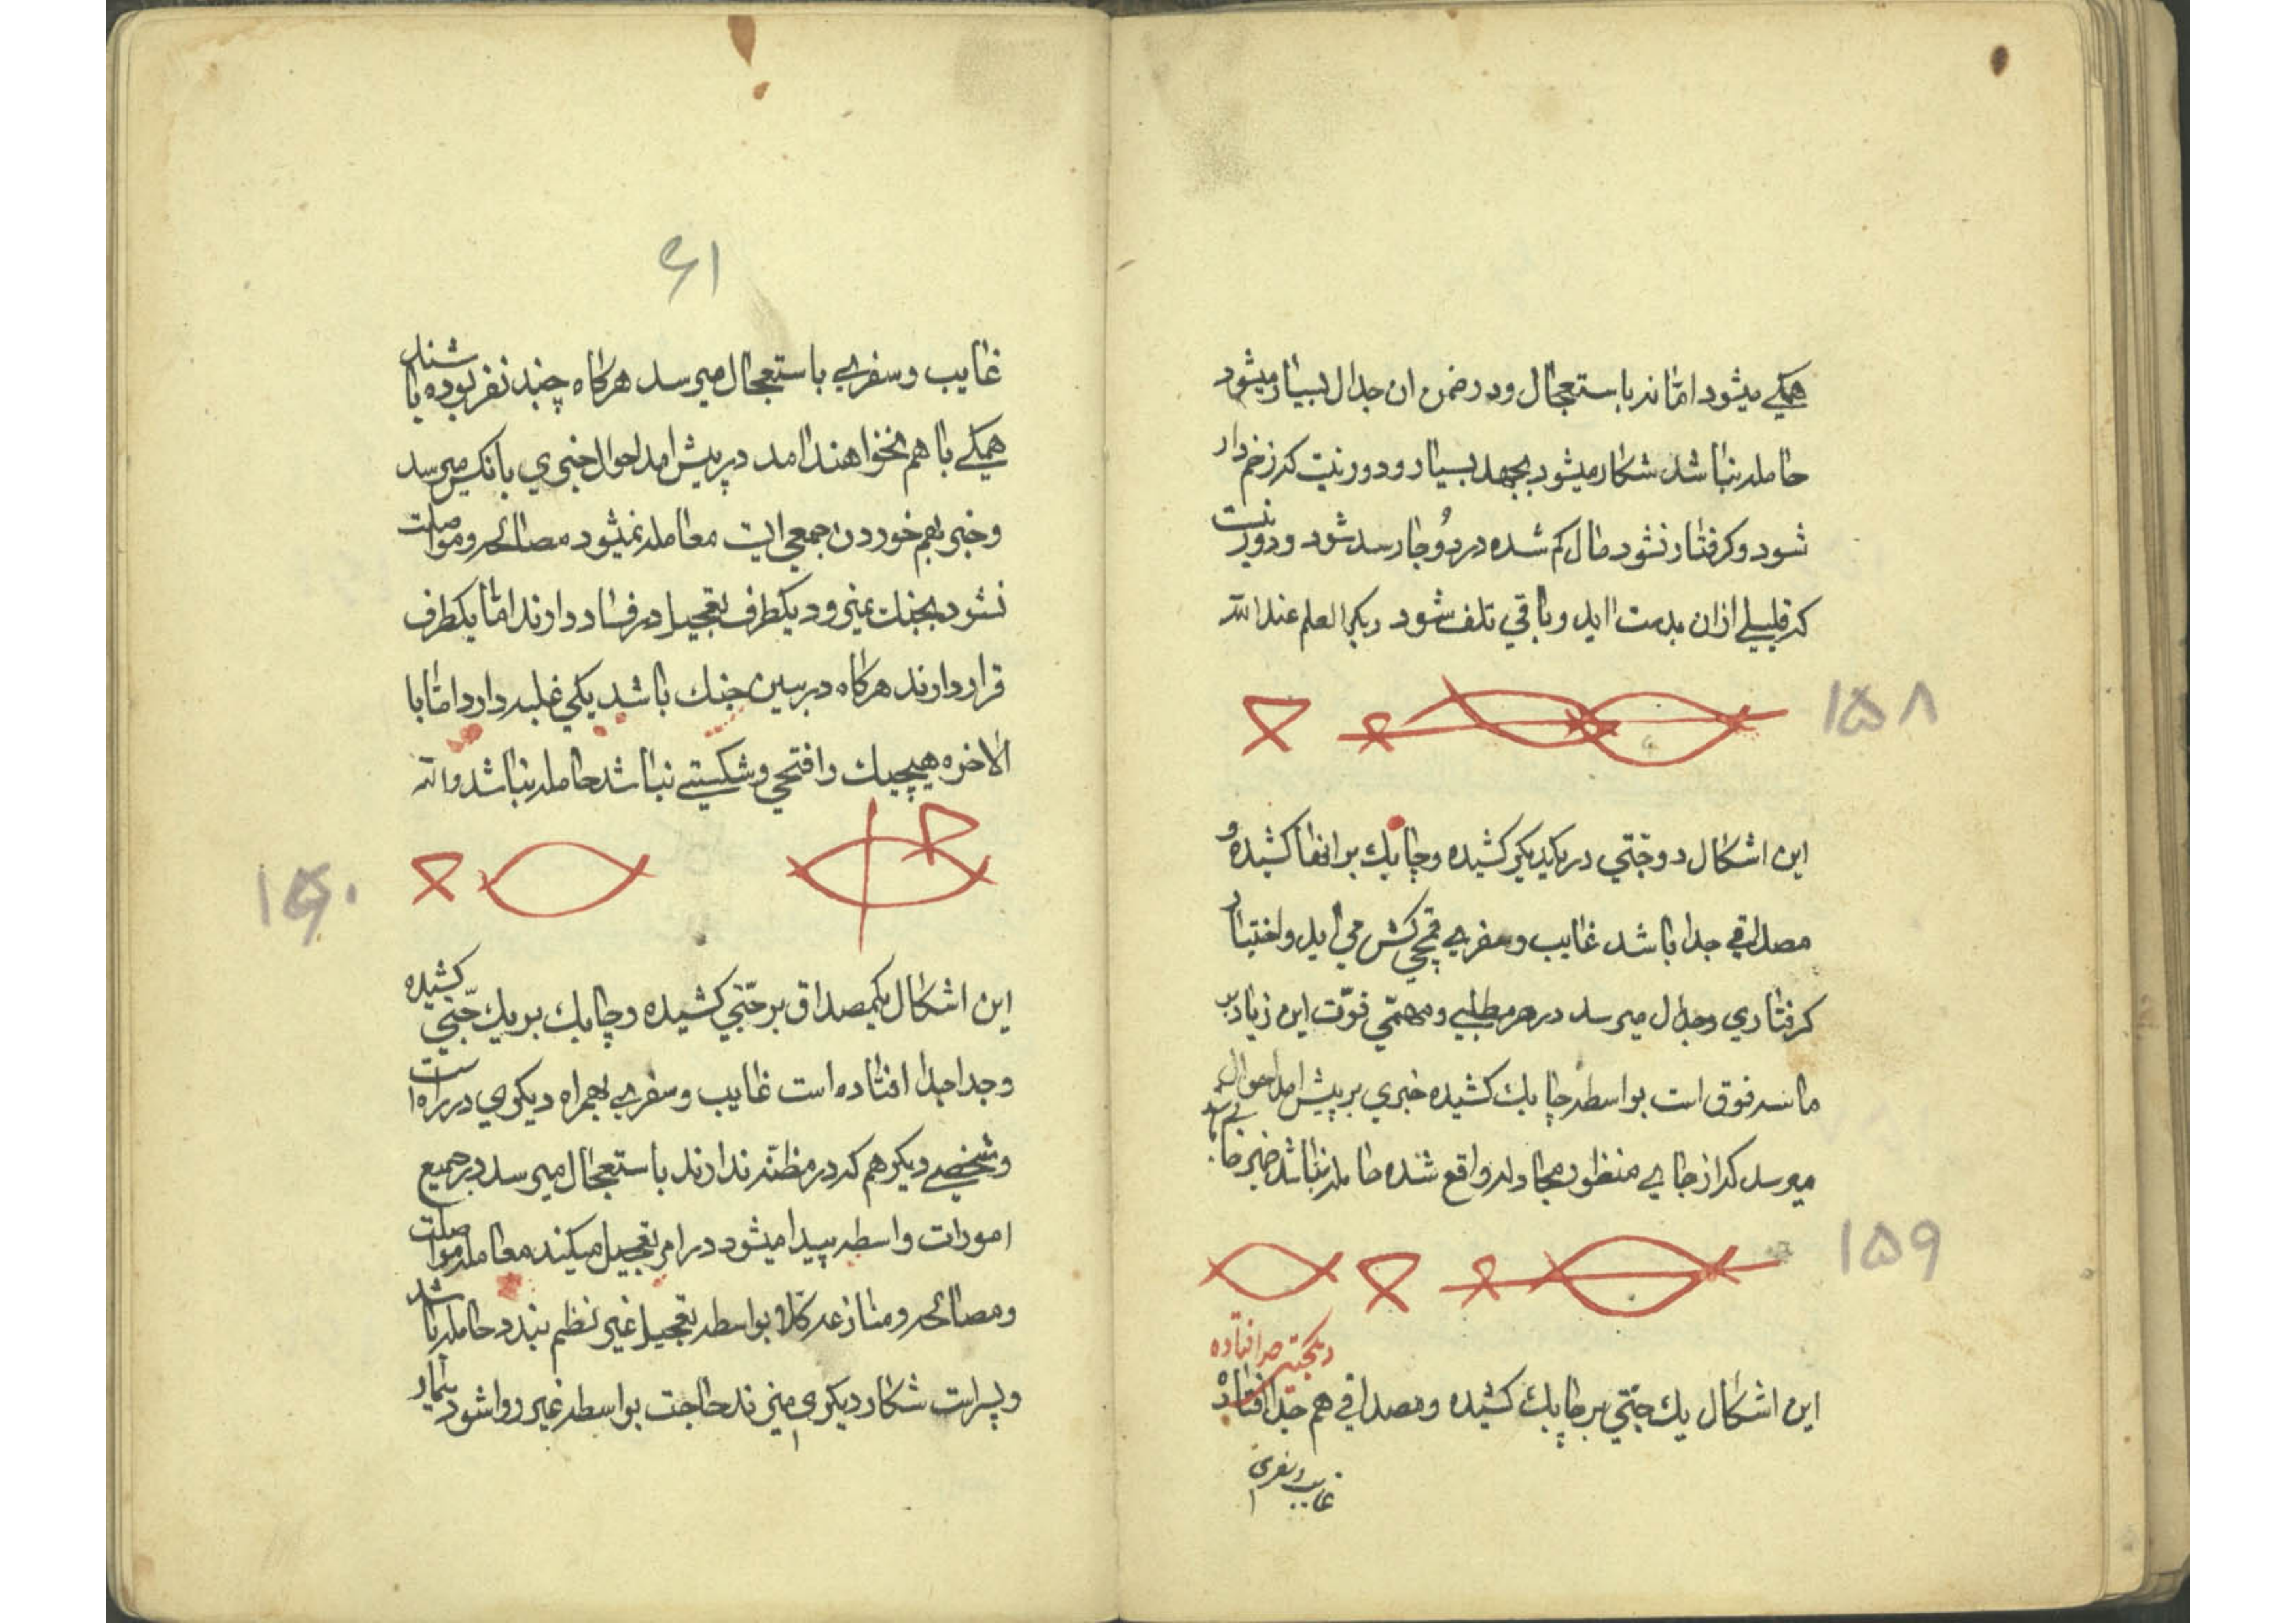 همکے میشود اما نه باستعجال و در ضمن ان جدال بسیار میشود
حامله نباشد شکار میشود بجهد بسیار و دور نیت که زخم دار
شود و کرفتار نشود مال کم شده در دو جا رسد شود و دور نیت
که قلیلے از ان بدست اید و باقي تلف شود دیکر العلم عند الله
۱۵۸
این اشکال دو جتي در یکدیکر کشیده و چابك بر انها کشیده و
مصداقے جدا باشد غایب و سفرے قمچي کش مي اید و اختیار
کرفتاري و جدال میرسد در هر مطلبے و مهمّي قوّت این زیاد بر
ما سه فوق است بواسطه چابك کشیده خبري بر پیش امد احوال
میرسد که از جاے منظور مجادله واقع شده حامله نباشد خبر
۱۵۹
دیکجتے جدا افتاده
این اشکال یك جتّي بر چابك کشیده و مصداقي هم جدا افتاده
غایب و سفری
۶۱
غایب و سفرے باستعجال میرسد هرکاه چند نفر بوده باشند
همکے با هم نخواهند امد در پیش امد احوال خبري بانکس میرسد
و خبر بهم خوردن جمعي ایت معامله نمیشود مصالحه و مواصلت
نشود بجنك نمیرود یکطرف تعجیل در فساد دارند اما یکطرف
قرار دارند هرکاه در بین جنك باشد یکي غلبه دارد اما با
لاخره هیچیك را فتحي و شکستے نباشد حامله نباشد والله
۱۶۰
این اشکال یکمصداق بر جتّي کشیده و چابك بر یك جتّي کشیده
و جدا جدا افتاده است غایب و سفرے بهمراه دیکري در راه است
و شخصے دیکر هم که در مظنّه ندارند باستعجال میرسد در جمیع
امورات واسطه پیدا میشود در امر تعجیل میکند معامله مواصلت
و مصالحه و منازعه کلا بواسطه تعجیل غیر نظم بندد حامله باشد
و پسر است شکار دیکري میزند حاجت بواسطه غیر روا شود بیمار